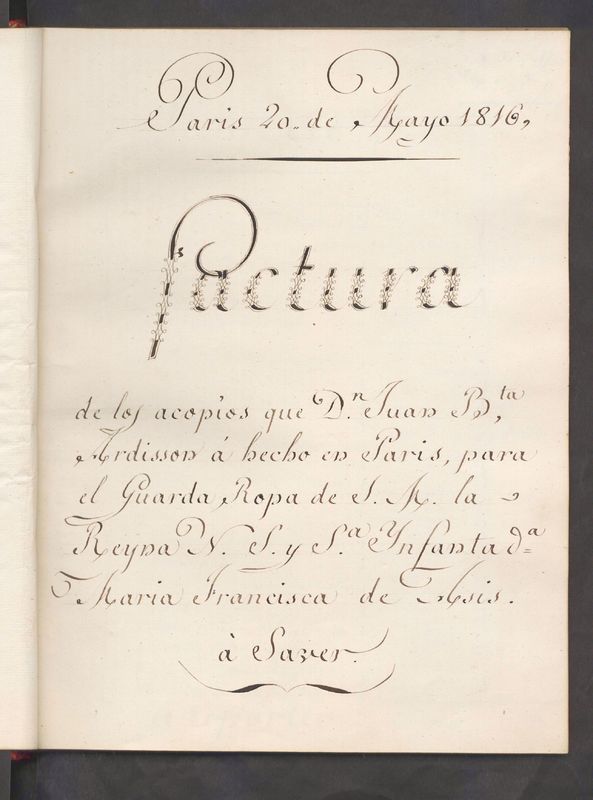 Paris 20. de Mayo 1816,
Factura
de los acopios que D.n Juan B.ta
Ardisson á hecho en Paris, para
el Guarda Ropa de S. M. la
Reyna N. S. y S.a Ynfanta d.a
Maria Francisca de Asis.
à Saver.